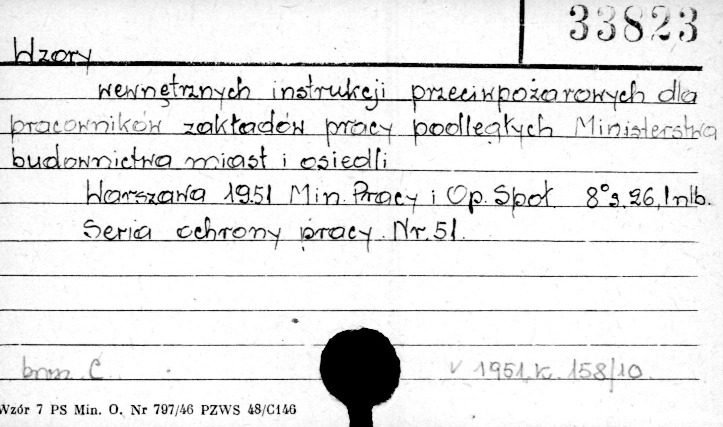 33823
Wzory
wewnętrznych instrukcji przeciwpożarowych dla
pracowników zakładów pracy podległych Ministerstwa
budownictwa miast i osiedli
Warszawa 1951 Min. Pracy i Op. Społ. 8° s. 26, 1 nlb.
Seria ochrony pracy. Nr. 51.
brosz. C.
v 1951. k. 158/10.
Wzór 7 PS Min. O. Nr 797/46 PZWS 48/C146